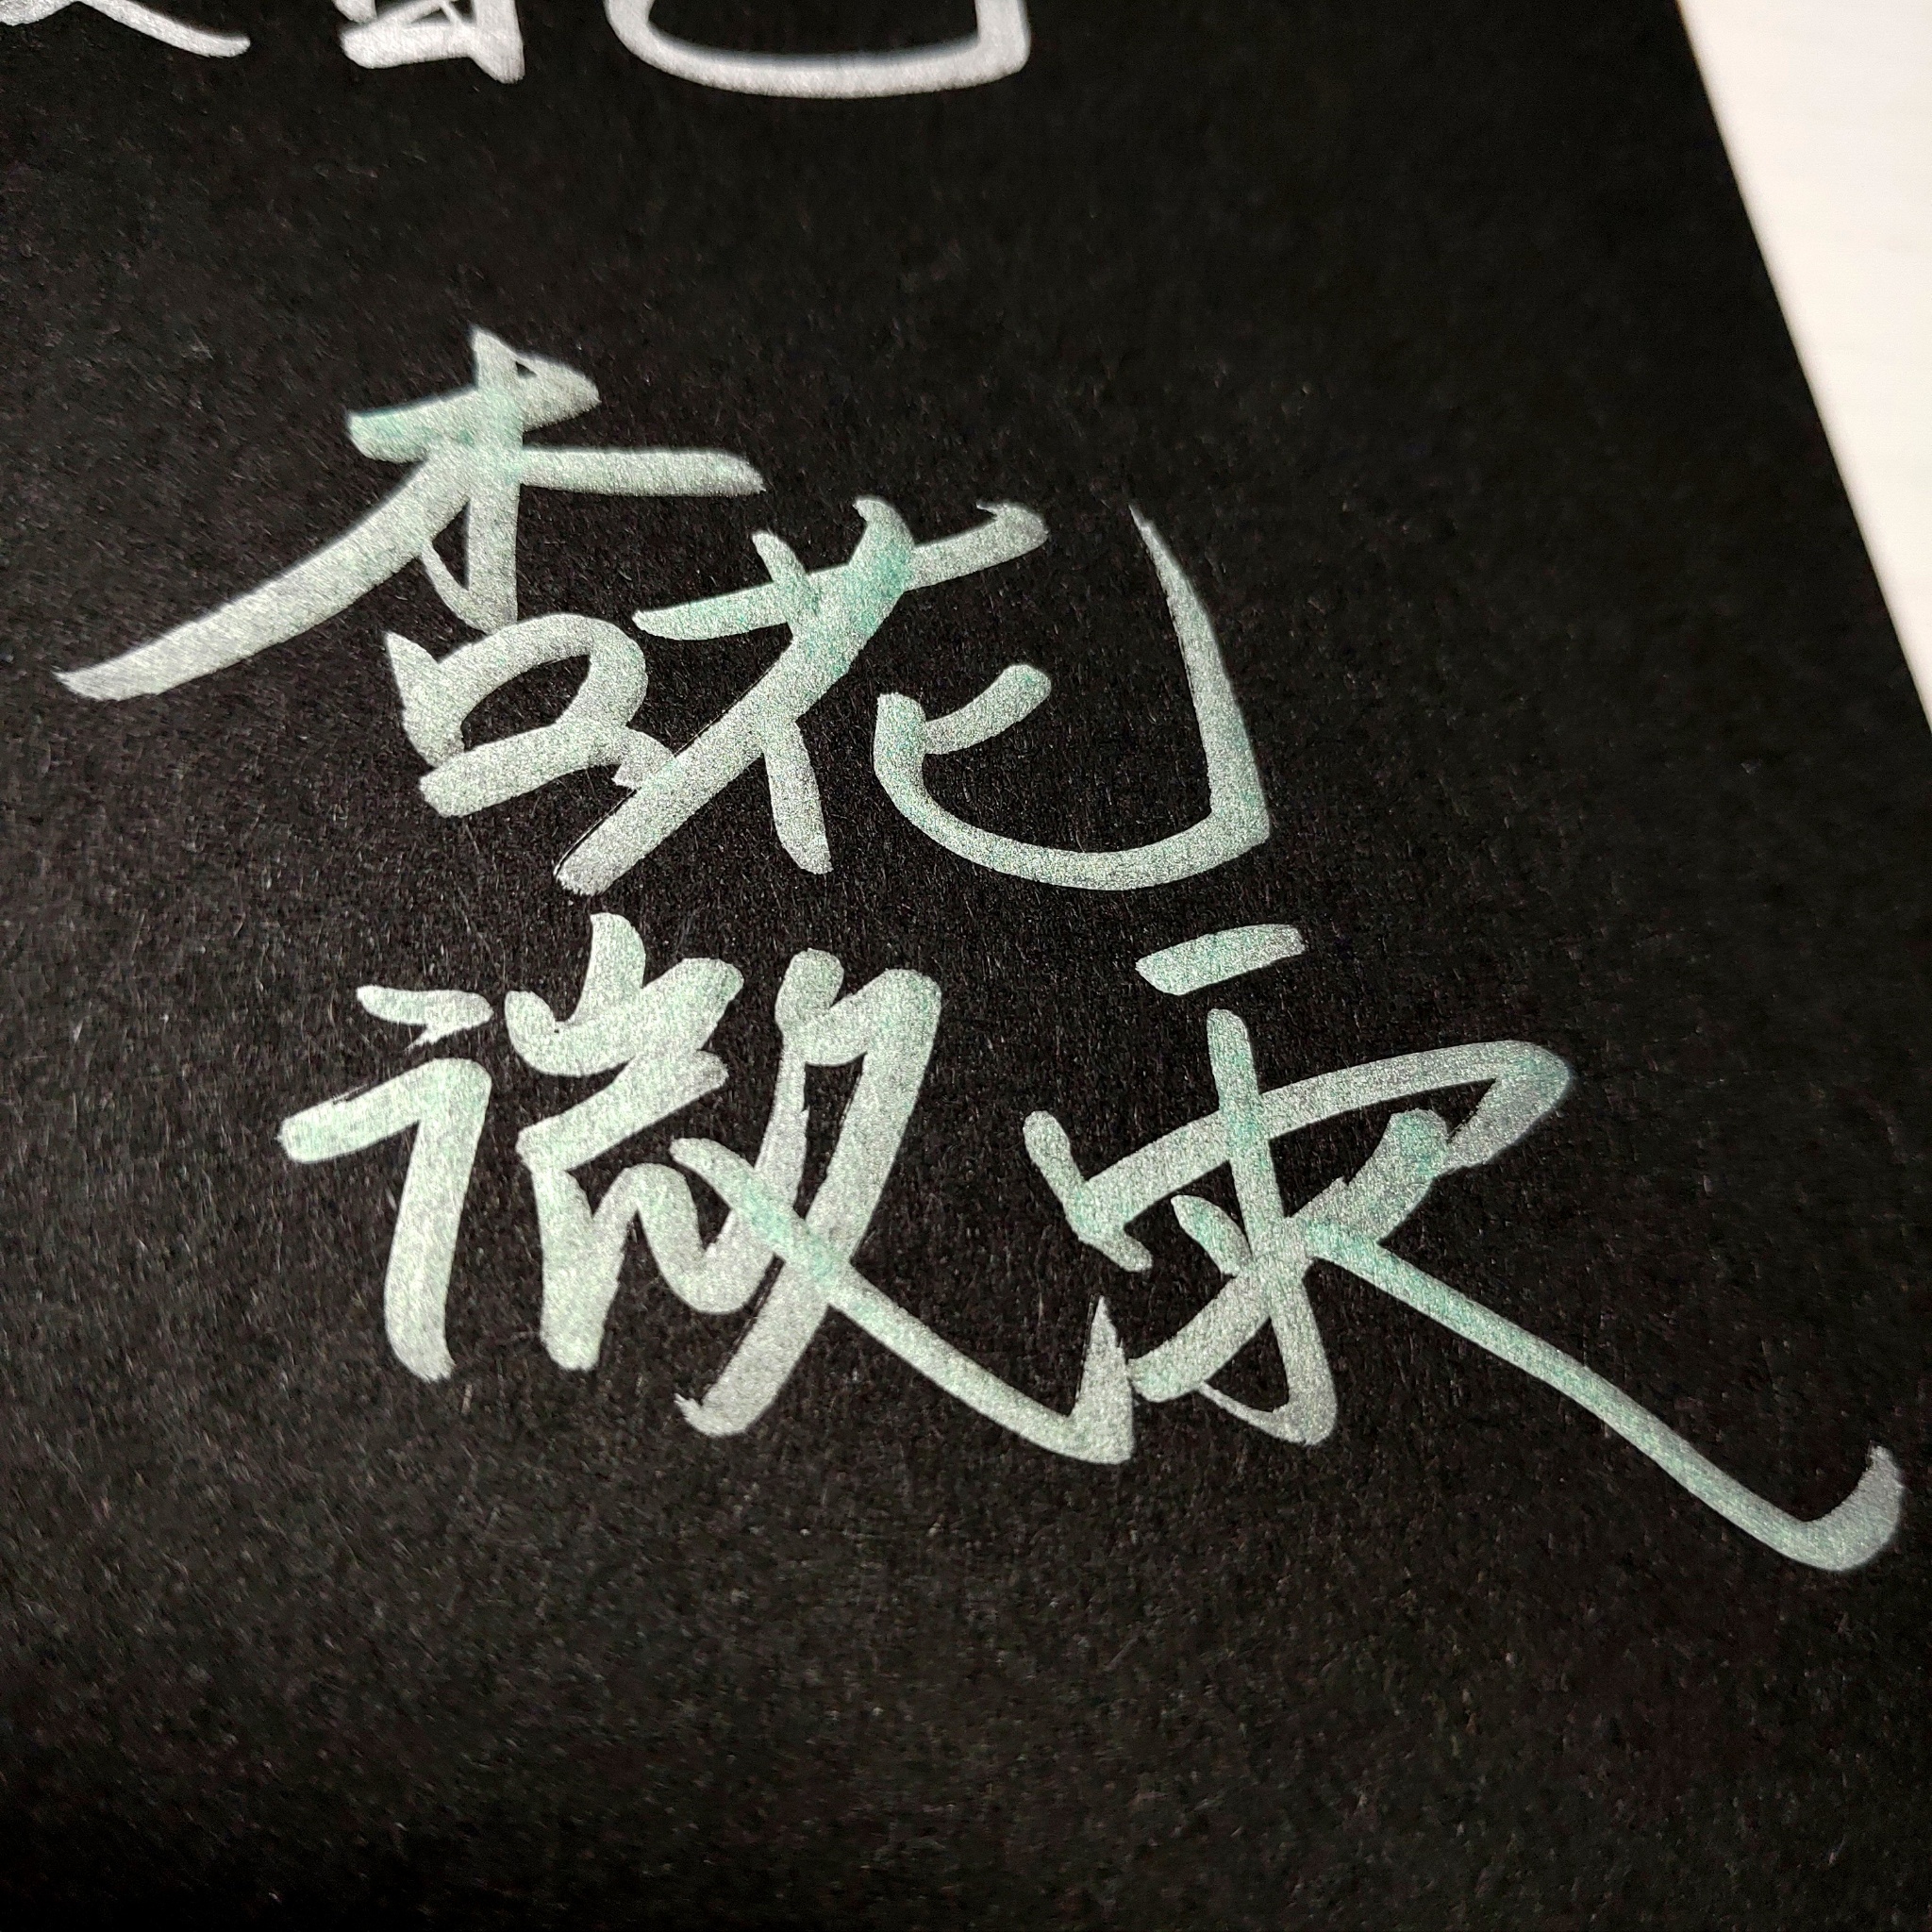 杏花
微雨